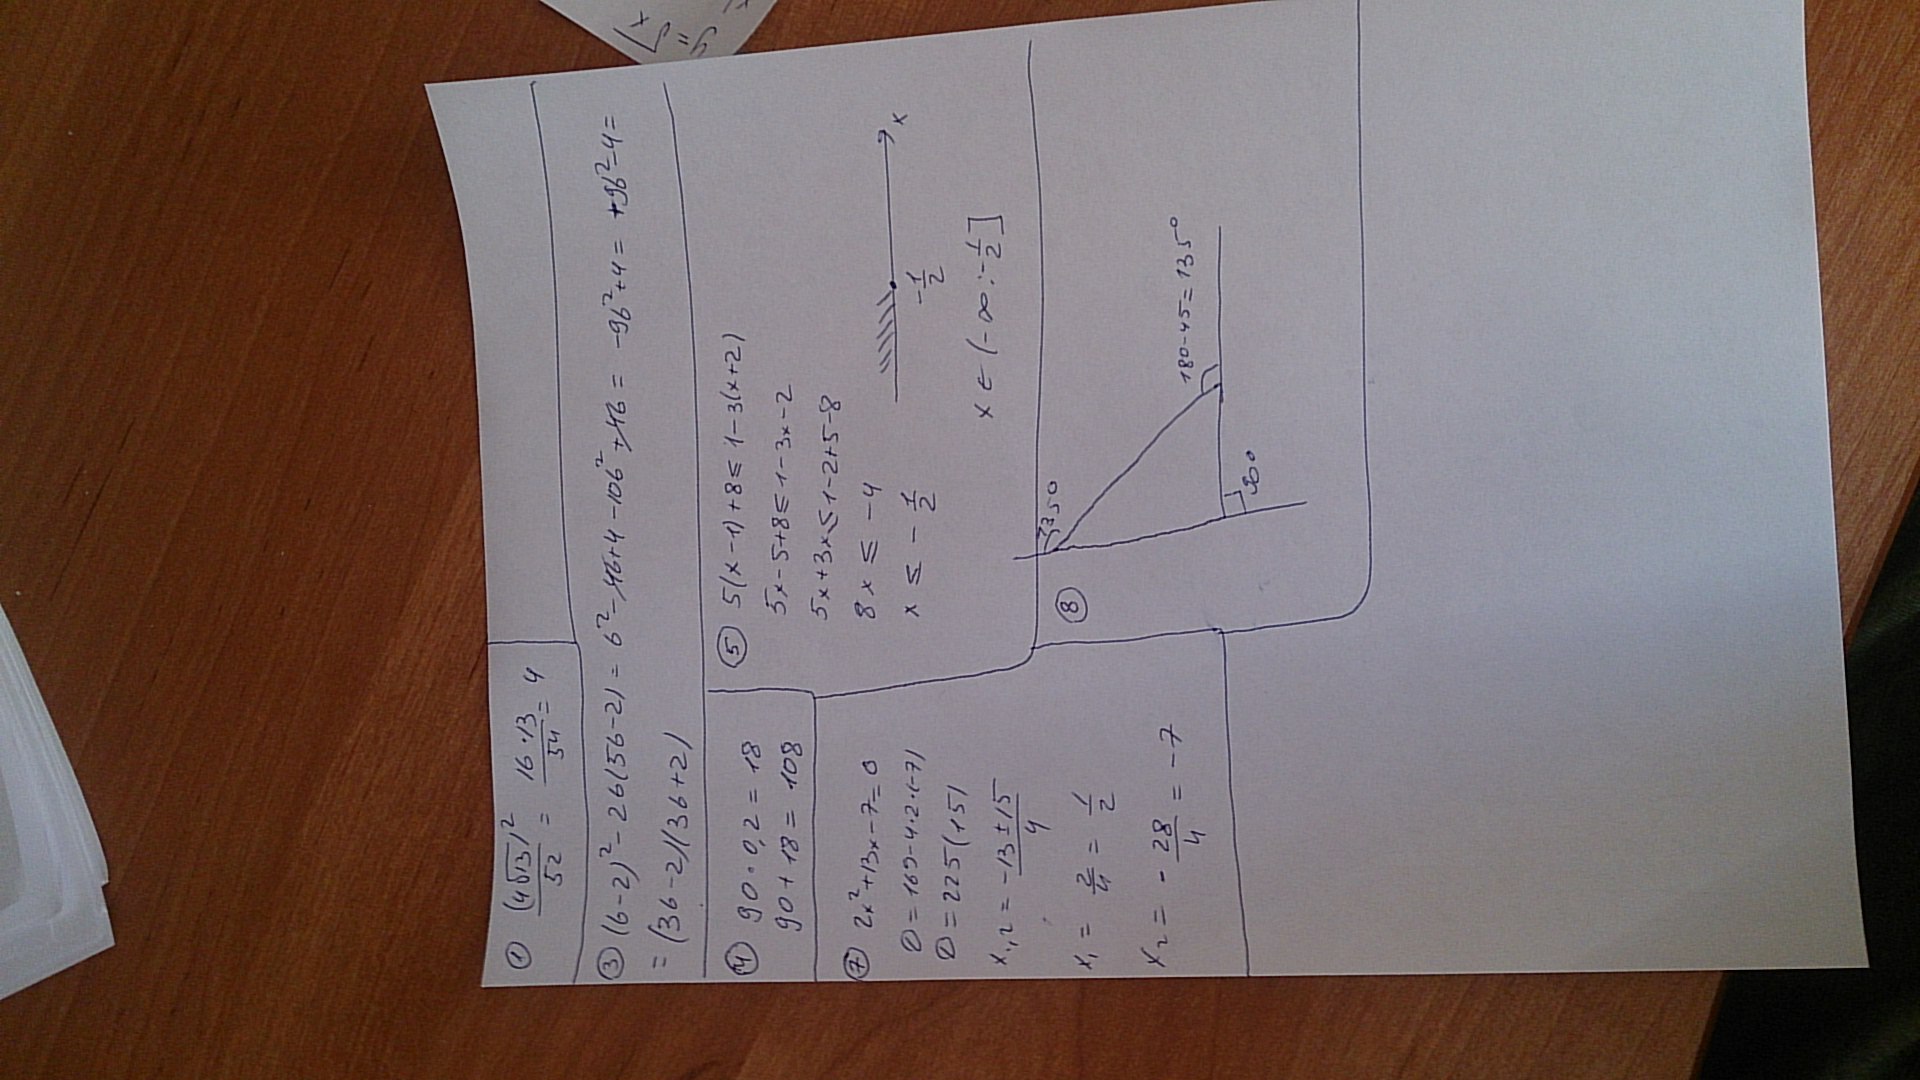 ① (4√13)²/52 = 16·13/54 = 4
③ (b-2)² - 2b(5b-2) = b² - 4b+4 - 10b² + 4b = -9b²+4 = +9b²-4 =
= (3b-2)(3b+2)
④ 90·0,2 = 18
90+18 = 108
⑤ 5(x-1)+8 ≤ 1-3(x+2)
5x-5+8 ≤ 1-3x-2
5x+3x ≤ 1-2+5-8
8x ≤ -4
x ≤ -1/2
-1/2
x
x ∈ (-∞; -1/2]
⑦ 2x²+13x-7=0
D = 169-4·2·(-7)
D = 225(15)
x₁,₂ = -13±15/4
x₁ = 2/4 = 1/2
x₂ = -28/4 = -7
⑧
135°
180-45=135°
90°